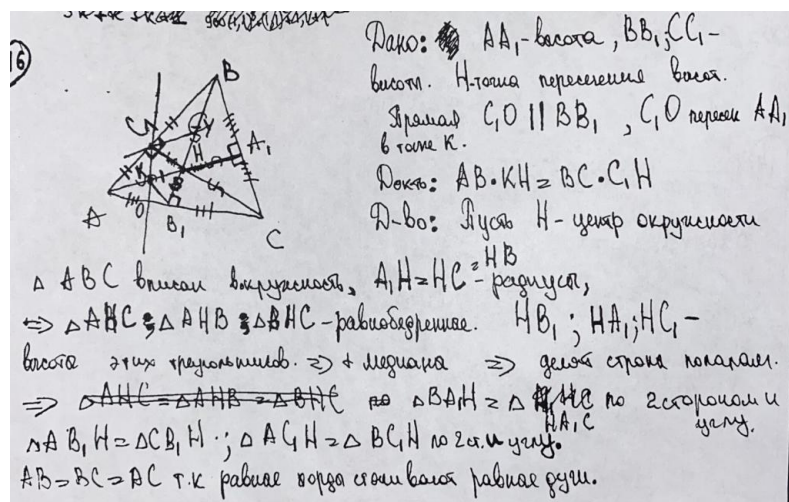 16
Дано: AA₁-высота, BB₁; CC₁-
высоты. H-точка пересечения высот.
Прямая C₁O || BB₁, C₁O пересек AA₁
в точке K.
Док-ть: AB·KH = BC·C₁H
Д-во: Пусть H - центр окружности
B
C₁
Y
H
A₁
K
A
O
B₁
C
△ ABC вписан в окружность, A₁H = HC = HB - радиусы,
=> △AHC; △AHB; △BHC - равнобедренные. HB₁; HA₁; HC₁ -
высота этих треугольников. => + медиана => делят строна пополам.
=> △BA₁H = △HA₁C по 2 сторонам и
углу.
△AB₁H = △CB₁H; △AC₁H = △BC₁H по 2 ст. и углу.
AB = BC = AC т.к равные хорды стягивают равные дуги.